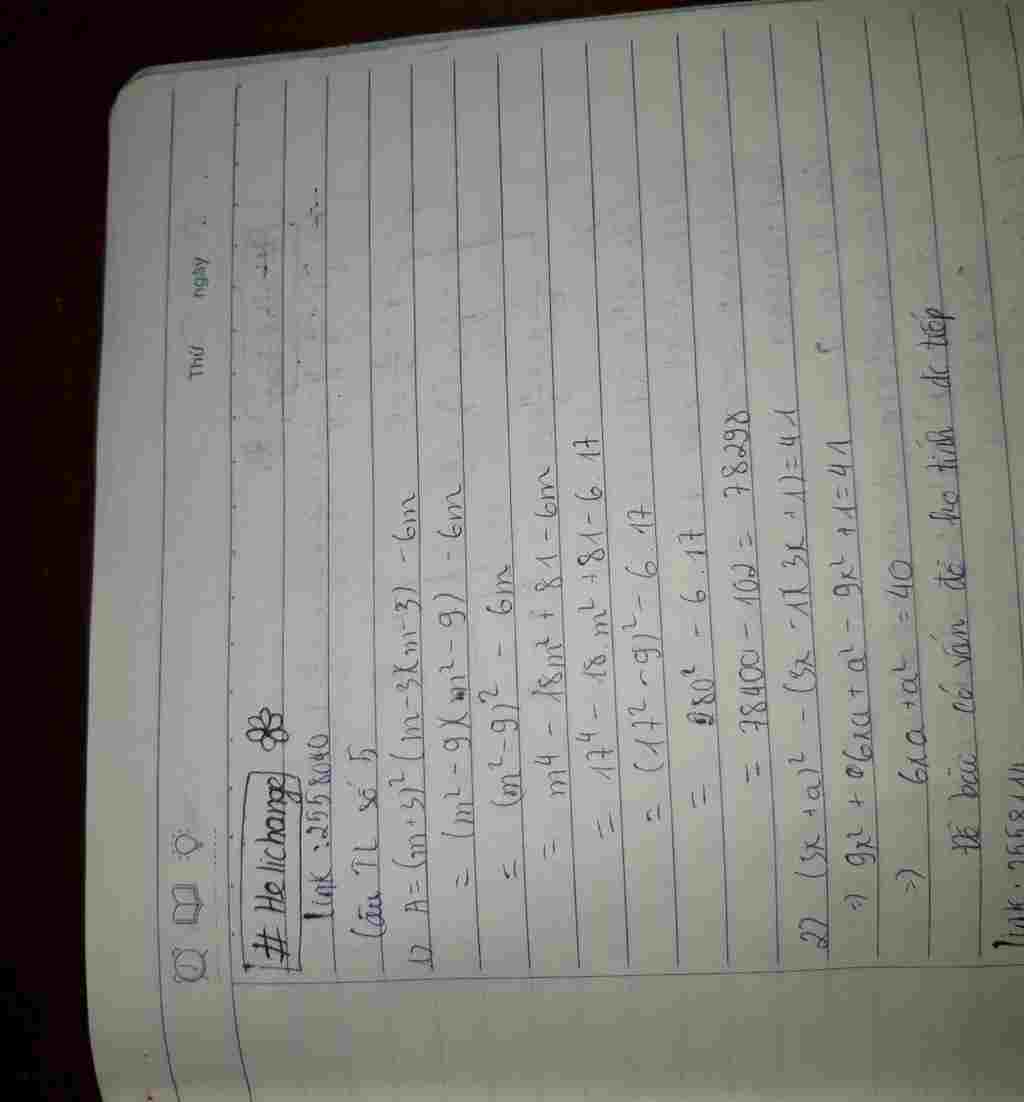 Thứ ngày
# Helichange
link : 2558040
Câu TL số 5
1) A = (m+3)² (m-3)(m-3) - 6m
= (m²-9)(m²-9) - 6m
= (m²-9)² - 6m
= m⁴ - 18m² + 81 - 6m
= 17⁴ - 18.m² + 81 - 6.17
= (17²-9)² - 6.17
= 280² - 6.17
= 78400 - 102 = 78298
2) (3x+a)² - (3x-1)(3x+1) = 41
=) 9x² + 6xa + a² - 9x² + 1 = 41
=) 6xa + a² = 40
Đề bài có vấn đề tính tiếp
link : 2558114